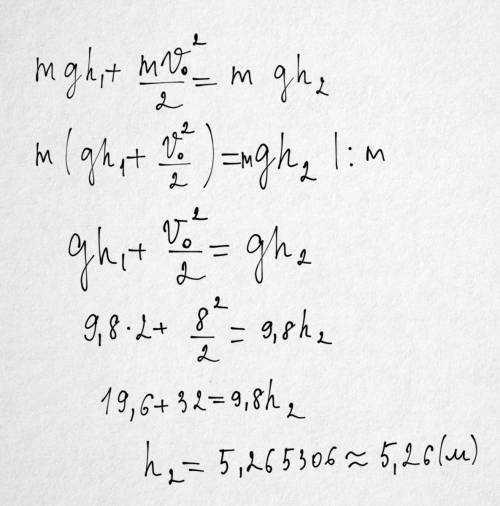 mgh₁ + mv₀²/2 = m gh₂
m(gh₁ + v₀²/2) = mgh₂ | : m
gh₁ + v₀²/2 = gh₂
9,8·2 + 8²/2 = 9,8h₂
19,6 + 32 = 9,8h₂
h₂ = 5,265306 ≈ 5,26 (м)